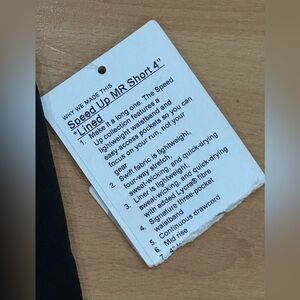 WHY WE MADE THIS
Speed Up MR Short 4"
*Lined
1. Make it a long one. The Speed
Up collection features a
lightweight waistband and
easy-access pockets so you can
focus on your run - not your
gear
2. Swift fabric is lightweight,
four-way stretch,
sweat-wicking, and quick-drying
3. Liner is lightweight,
sweat-wicking, and quick-drying
with added Lycra® fibre
4. Signature three-pocket
waistband
5. Continuous drawcord
6. Mid rise
7. 4"